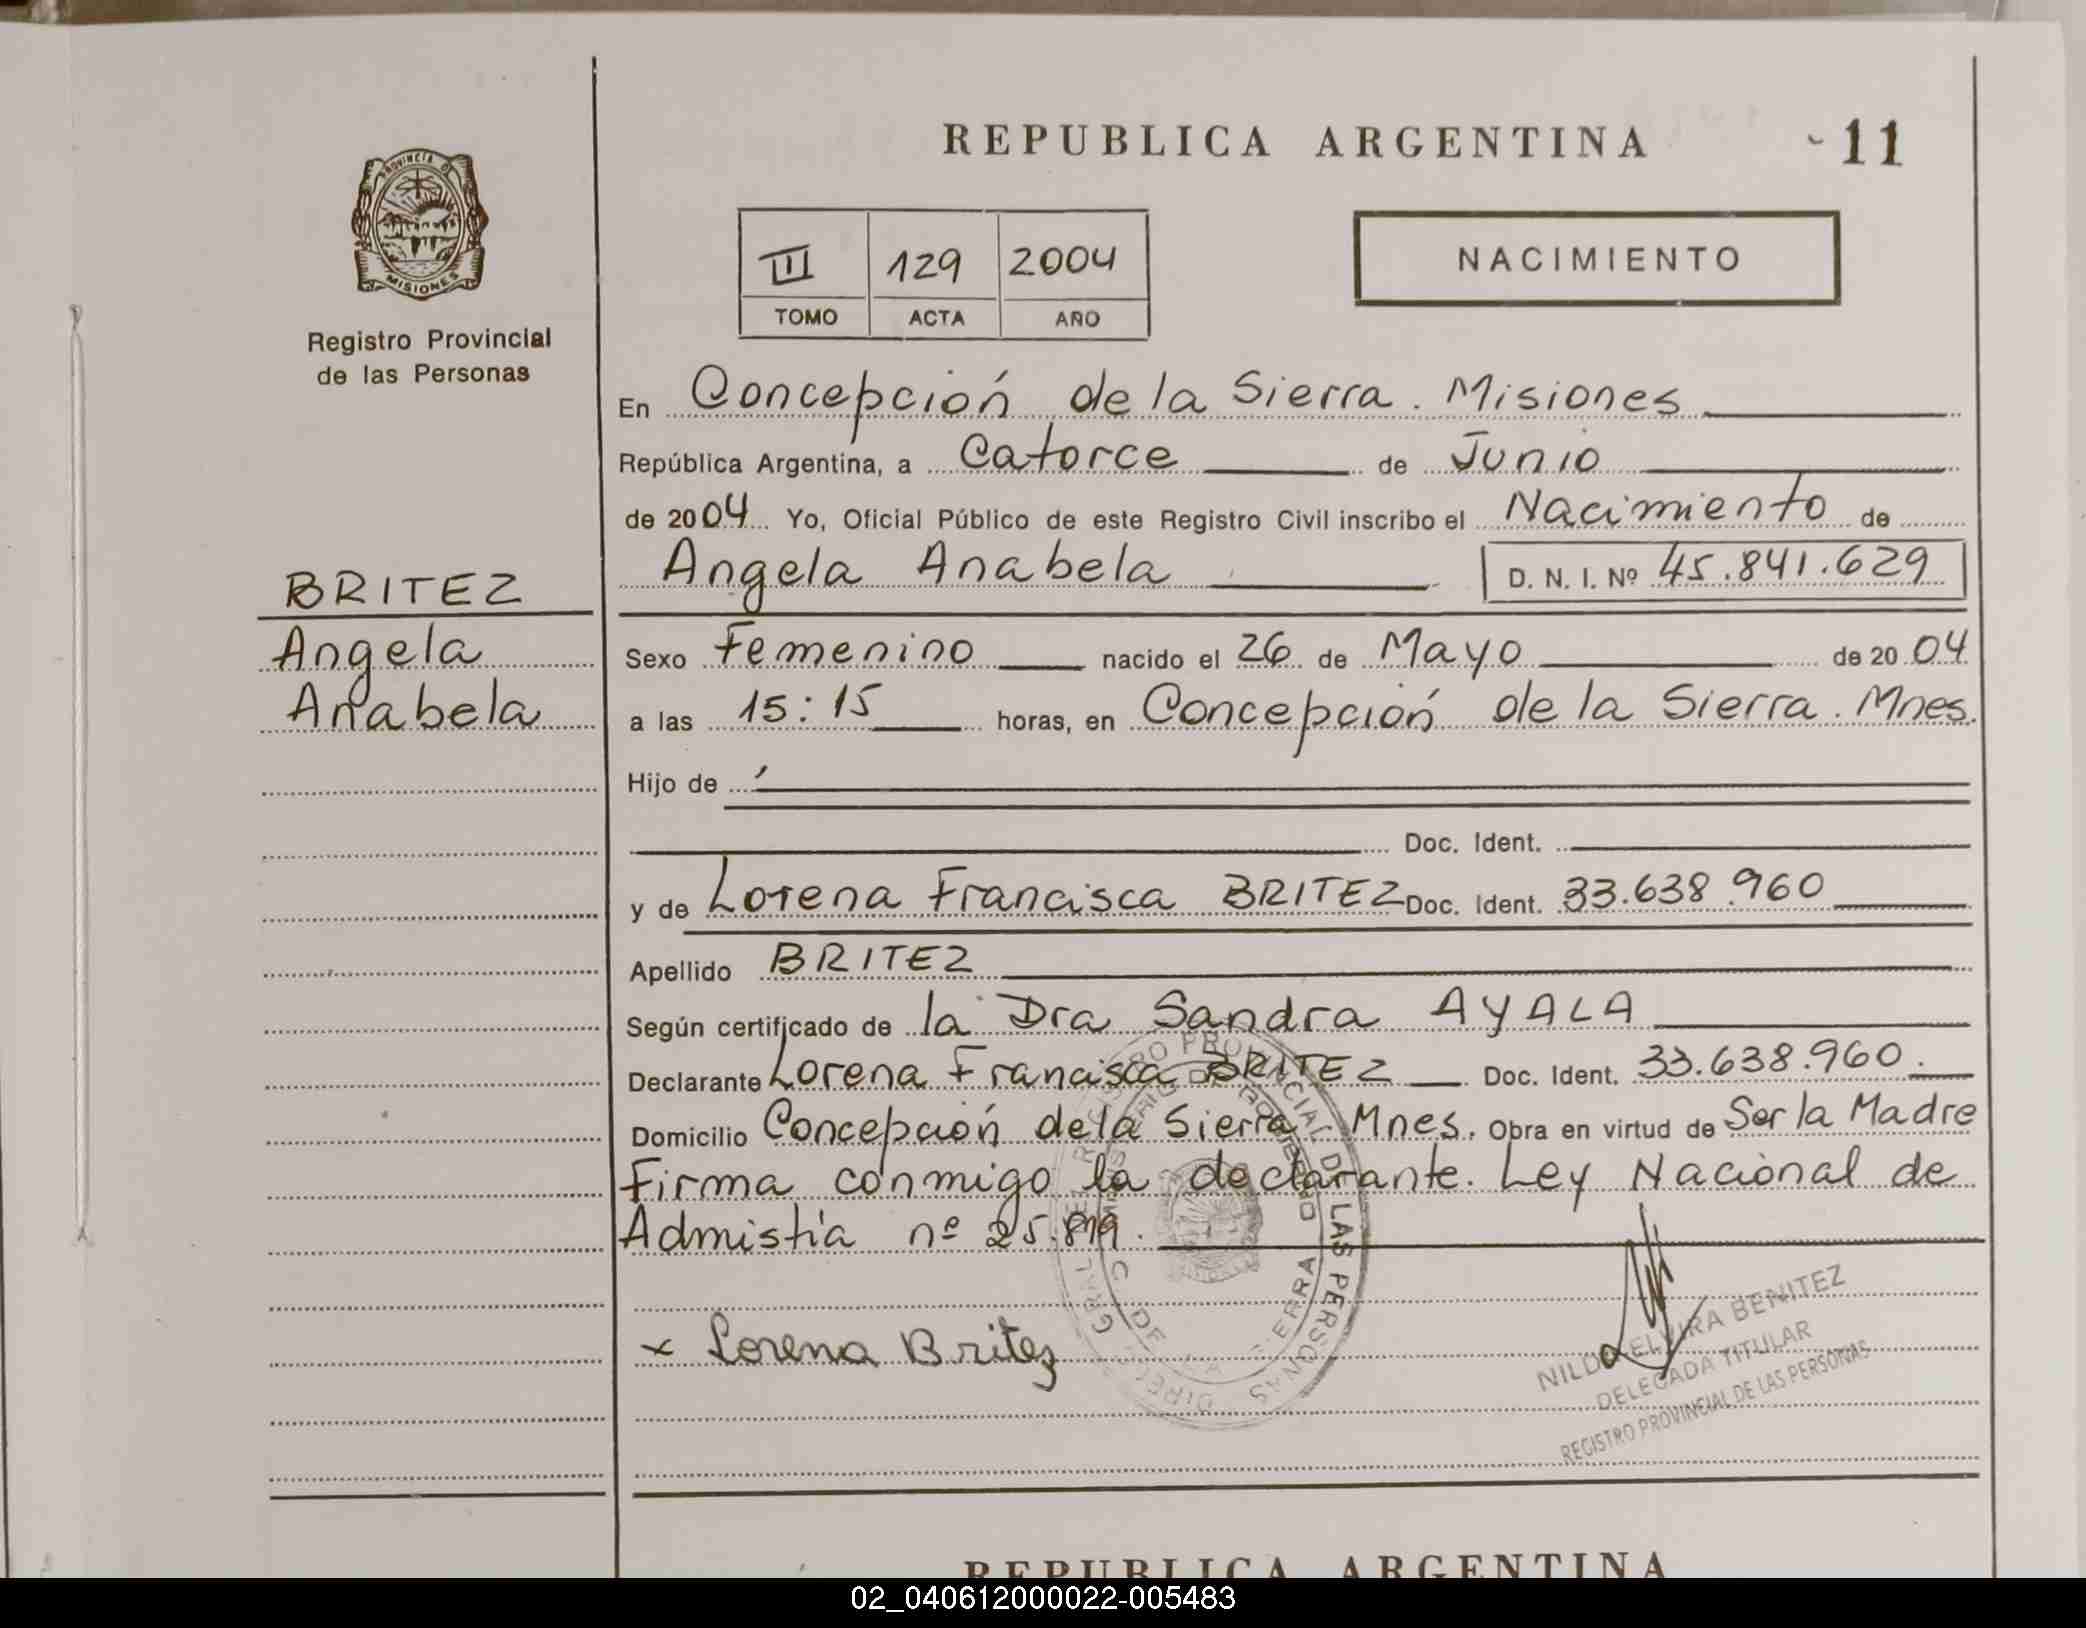 REPUBLICA ARGENTINA
11
PROVINCIA DE MISIONES
Registro Provincial
de las Personas
III 129 2004
TOMO ACTA AÑO
NACIMIENTO
En Concepción de la Sierra. Misiones
República Argentina, a Catorce de Junio
de 2004 Yo, Oficial Público de este Registro Civil inscribo el Nacimiento de
Angela Anabela D. N. I. Nº 45.841.629
BRITEZ
Angela
Anabela
Sexo Femenino nacido el 26 de Mayo de 2004
a las 15:15 horas, en Concepción de la Sierra. Mnes.
Hijo de
Doc. Ident.
y de Lorena Francisca BRITEZ Doc. Ident. 33.638.960
Apellido BRITEZ
Según certificado de la Dra Sandra AYALA
Declarante Lorena Francisca BRITEZ Doc. Ident. 33.638.960.
Domicilio Concepción de la Sierra Mnes. Obra en virtud de Ser la Madre
Firma conmigo la declarante. Ley Nacional de
Admistía nº 25.819.
x Lorena Britez
NILDA ELVIRA BENITEZ
DELEGADA TITULAR
REGISTRO PROVINCIAL DE LAS PERSONAS
REPUBLICA ARGENTINA
02_040612000022-005483